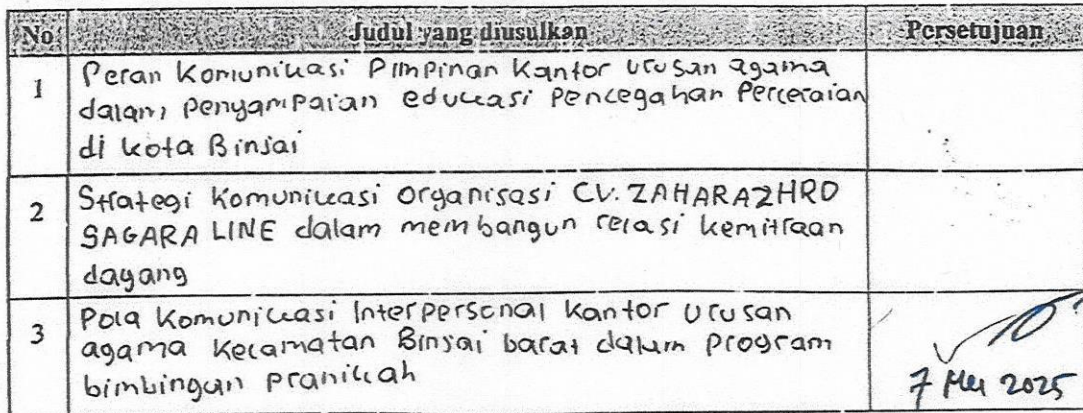 No Judul yang diusulkan Persetujuan
1 Peran Komunikasi Pimpinan Kantor urusan agama
dalam penyampaian edukasi Pencegahan Perceraian
di kota Binjai
2 Strategi Komunikasi Organisasi CV. ZAHARAZHRO
SAGARA LINE dalam membangun relasi kemitraan
dagang
3 Pola Komunikasi Interpersonal Kantor Urusan
agama Kecamatan Binjai barat dalam Program
bimbingan pranikah
7 Mei 2025